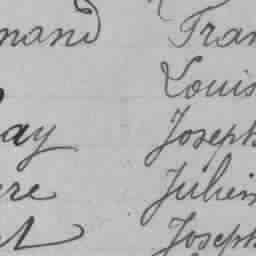 mand Fran
Louis
ay Joseph
ere Julien
et Joseph